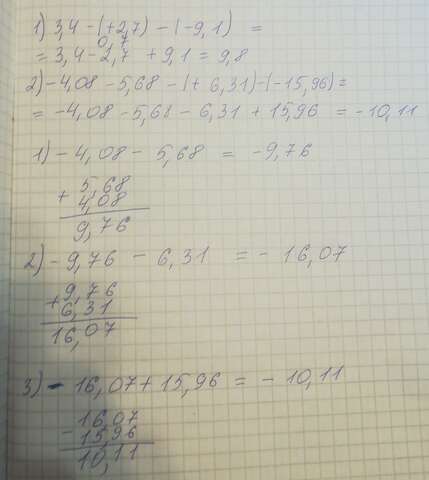 1) 3,4 - (+2,7) - (-9,1) =
0,7
= 3,4 - 2,7 + 9,1 = 9,8
2) - 4,08 - 5,68 - (+ 6,31) - (-15,96) =
= -4,08 - 5,68 - 6,31 + 15,96 = -10,11
1) - 4,08 - 5,68 = -9,76
+ 5,68
4,08
9,76
2) - 9,76 - 6,31 = - 16,07
+ 9,76
6,31
16,07
3) - 16,07 + 15,96 = - 10,11
- 16,07
15,96
10,11